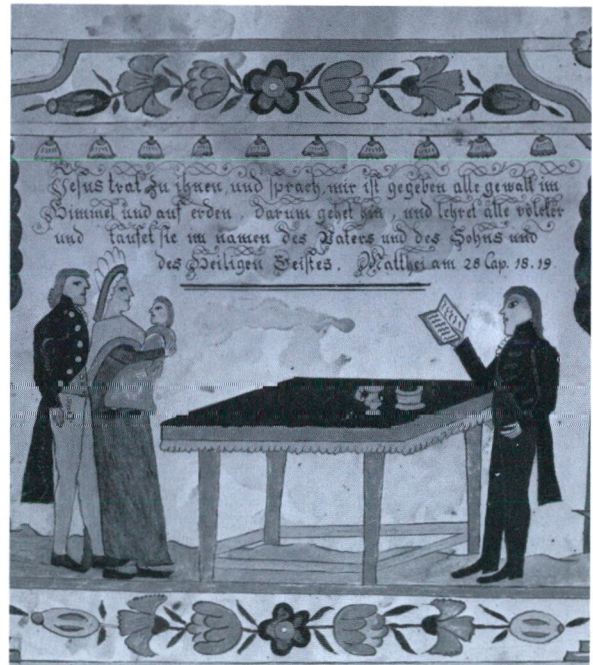 Jesus trat zu ihnen, und sprach, mir ist gegeben alle gewalt im
Himmel und auf erden. darum gehet hin, und lehret alle völcker
und taufet sie im namen des Vaters und des Sohns und
des Heiligen Geistes. Matthei am 28 Cap. 18. 19.